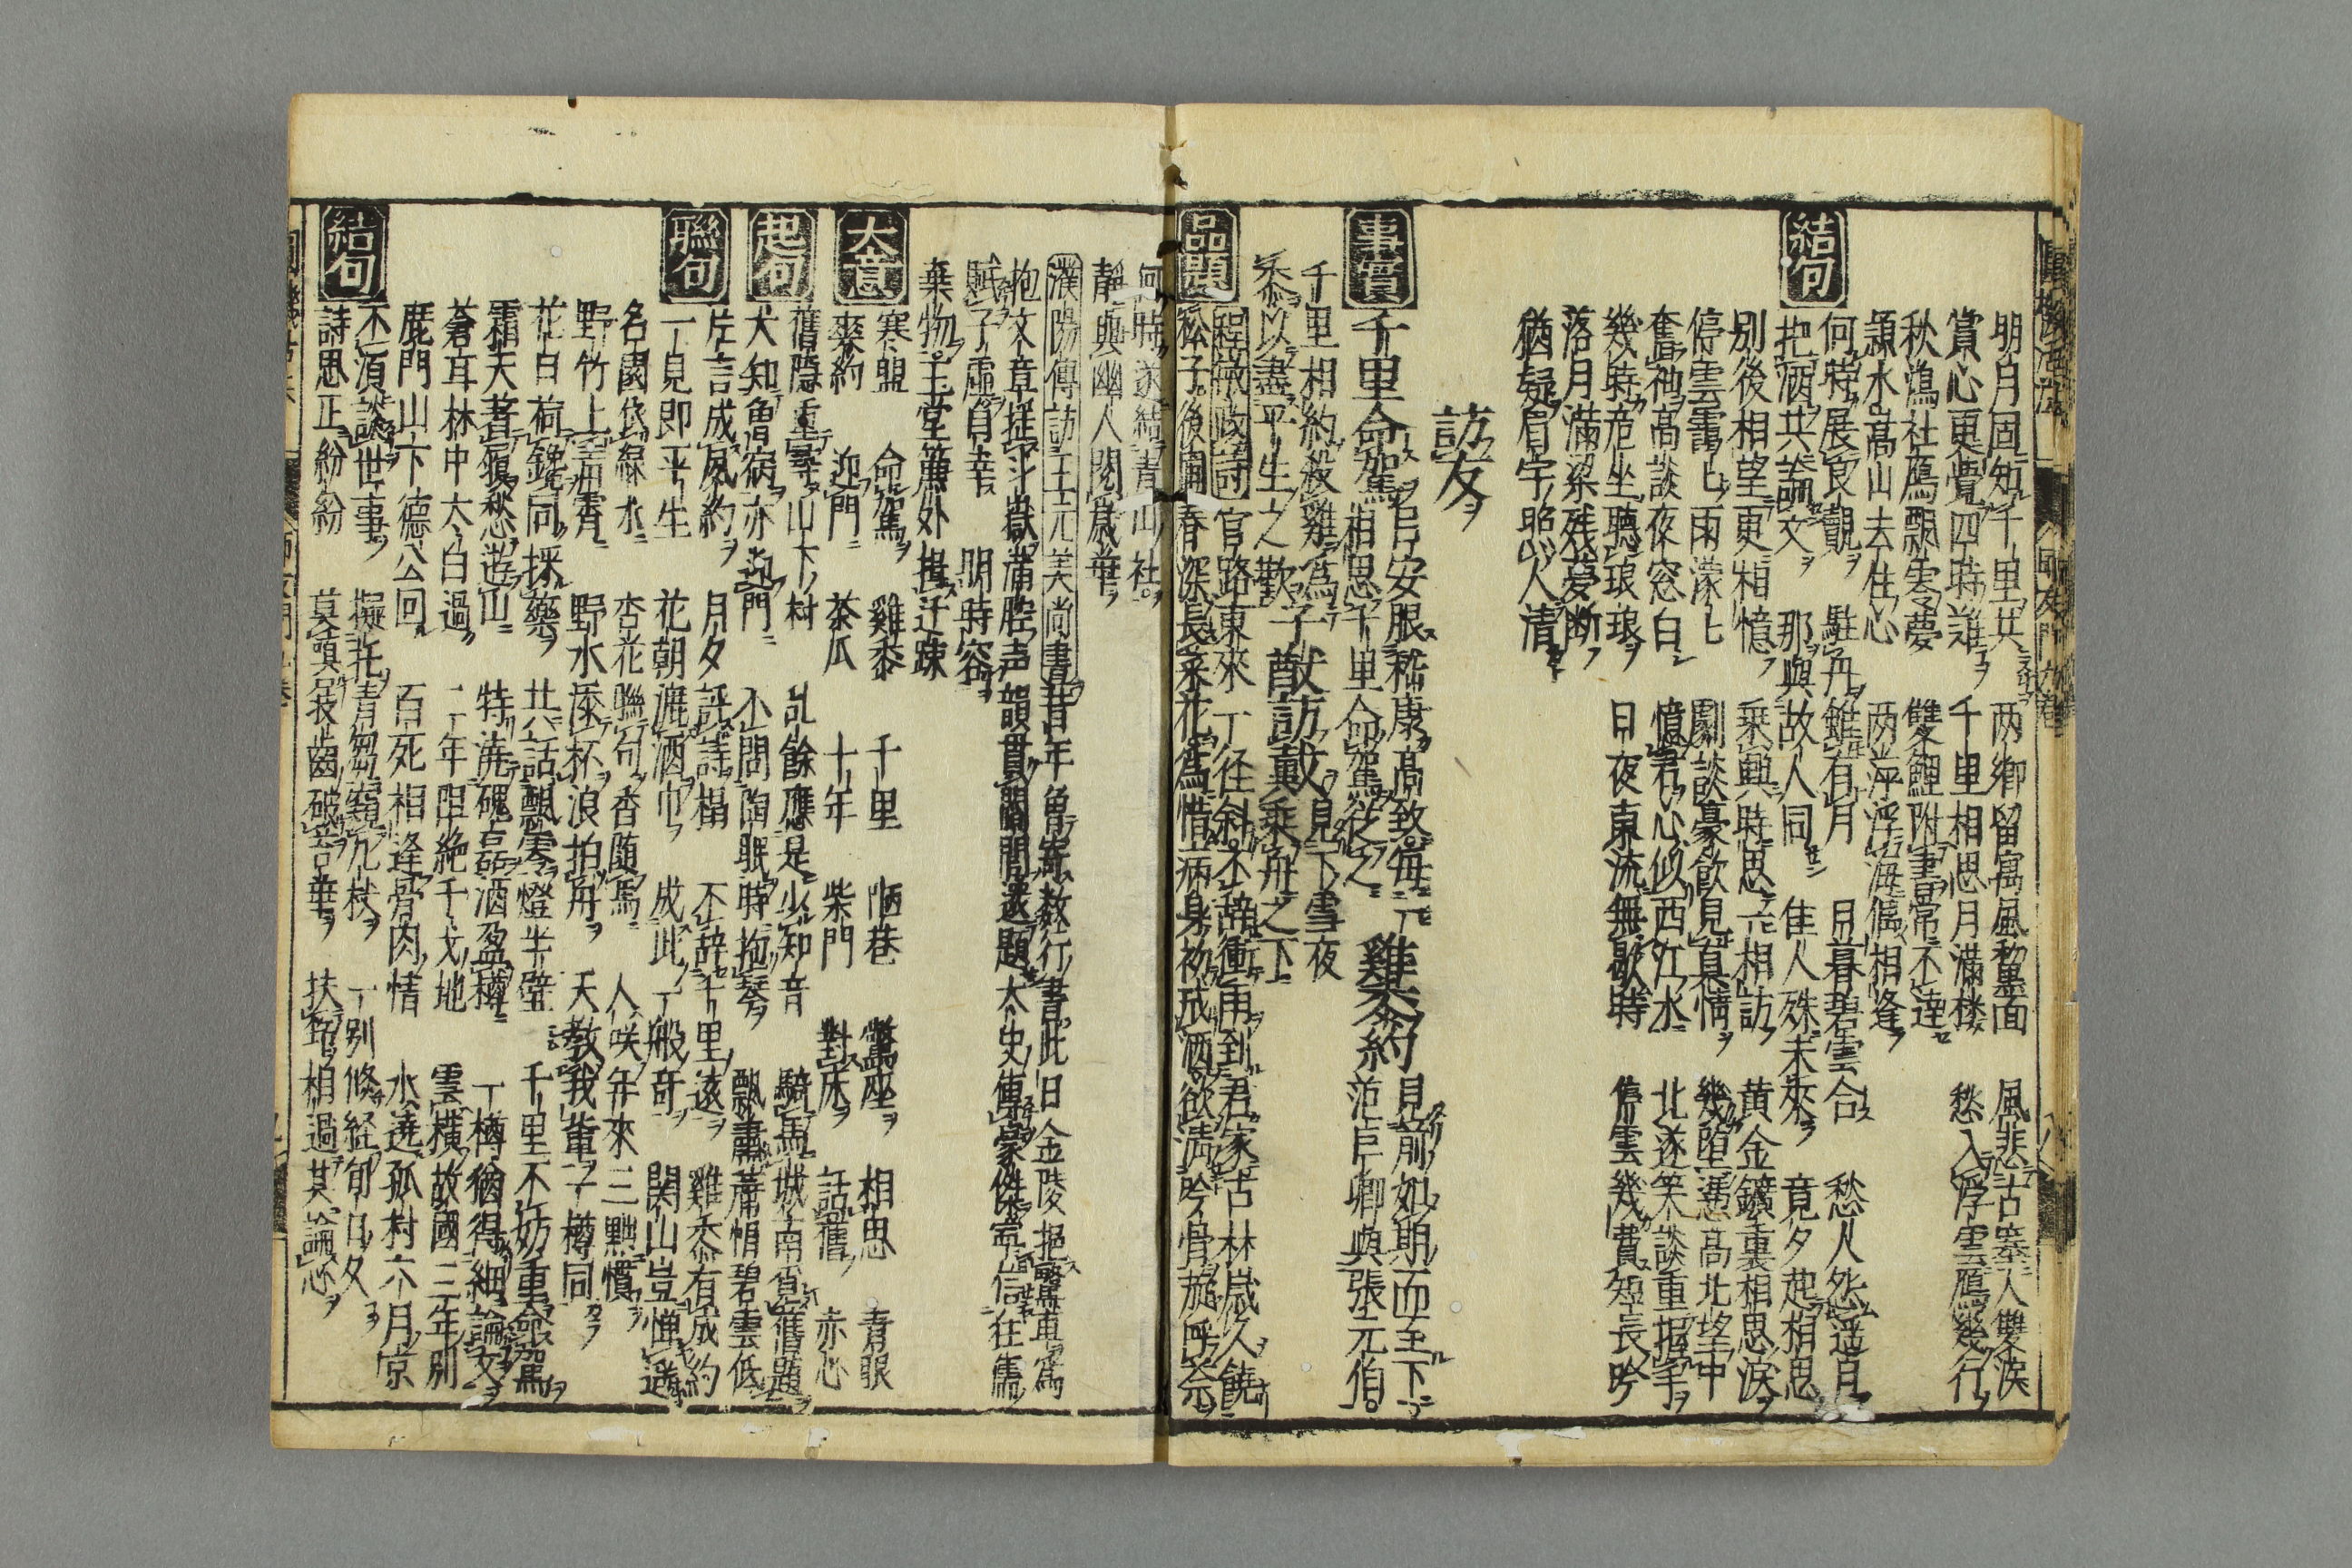 明月固知千里共 两鄉留寓風塵面 風悲古塞人雙淚
賞心更覺四時難 千里相思月滿楼 愁入浮雲鴈幾行
秋鴻社鴈飄零夢 雙鯉附書常不達
潁水嵩山去住心 两萍浮海偶相逢
何時展良覿 駐舟雖有月 日暮碧雲合 愁人怨遥月
結句
把酒共論文 那與故人同 佳人殊未來 竟夕起相思
別後相望更相憶 乗興時思一相訪 黄金鑛裏相思淚
停雲靄〻雨濛〻 劇談豪飲見真情 幾堕憑高北望中
奮袖高談夜窓白 憶君心似西江水 北遂笑談重握手
幾時危坐聽琅琅 日夜東流無歇時 停雲幾費短長吟
落月滿梁残夢断
猶疑眉宇照人清
訪友
事實
千里命駕 呂安服嵇康高致每一相思千里命駕從之 雞黍約 范巨卿與張元伯
千里相約殺雞為黍以盡平生之歡 子猷訪戴 見下雪夜乗舟之下
品題
程敏政詩 官路東來一径斜不辞衝雨到君家古林歲久饒松子後圃春深長菜花為惜病身初戒酒欲淸吟骨旋呼茶
何時遂結青山社
靜與幽人閱歲華
濮陽傳訪王元美尚書 昔年曾寄数行書此日金陵挹驚車寓
抱文章挺斗嶽滿腔声韻貫閭閻遂題太史傳豪傑寧信往儒
賦子虛自幸明時容
棄物玉堂簾外揖迂踈
大意
寒盟 命駕 雞黍 千里 陋巷 驚座 相思 青眼
麥約 迎門 茶瓜 十年 柴門 對床 話舊 赤心
起句
舊隱重尋山下村 乱餘應是少知音 騎馬城南覓舊題
犬知魯病亦迎門 不問陶眠時抱琴 飄蕭蓆帽碧雲低
聯句
片言成夙約 月夕託詩榻 不辞千里遠 雞黍有成約
一見即平生 花朝漉酒巾 成此一般奇 関山豈憚遥
名園依緑水 杏花聯句香随馬 人咲年來三黜慣
野竹上青霄 野水啣杯浪拍舟 天教我輩一樽同
花白荷銳同採藥 共話飄零燈半壁 千里不妨重命駕
霜天著履愁遊山 特澆磈磊酒盈樽 一樽猶得細論文
蒼耳林中大白過 二年阻絶千戈地 雲横故國三年別
鹿門山下德公回 百死相逢骨肉情 水遶孤村六月京
結句
不須談世事 擬托青芻窺几杖 一別倏経旬日夂
詩思正紛紛 莫嗔屐齒破苔華 扶筇相過其論心